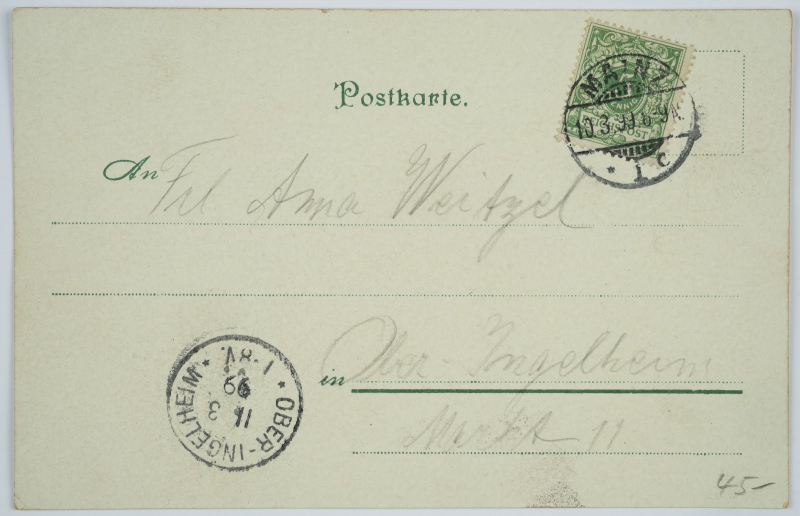 Postkarte.
MAINZ
10.3.99.6-9N.
* 1 c
PFENNIG
An Frl Anna Weitzel
in Ober-Ingelheim
Markt 11
OBER-INGELHEIM
11 3
99
7-8V.
45-